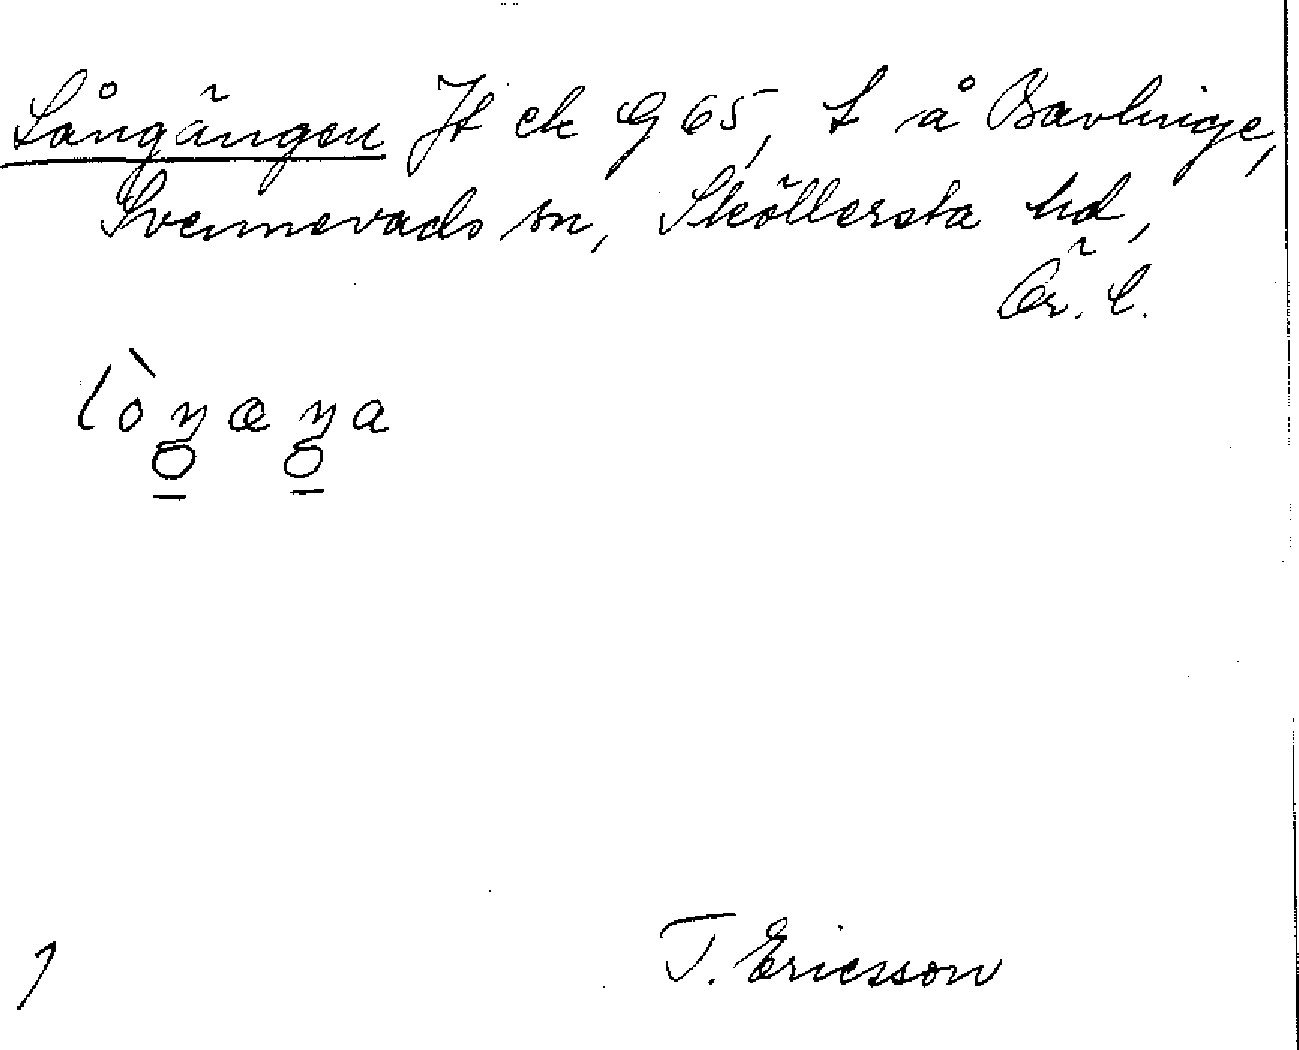 Långängen Jt ek G 65, t å Bavlinge,
Svennevads sn, Sköllersta hd,
Ör. l.
lòŋæŋa
T. Ericsson